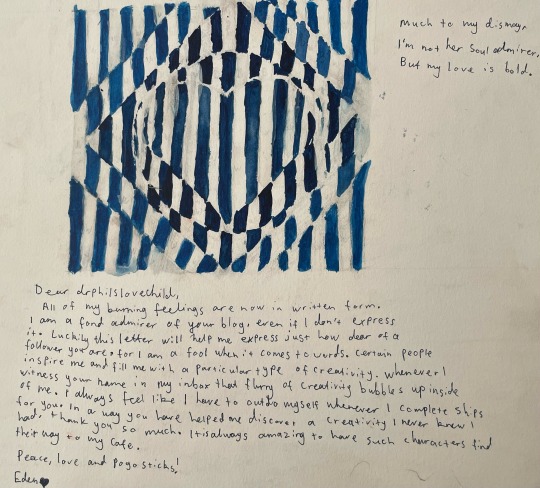 much to my dismay,
I'm not her soul admirer.
But my love is bold.
Dear drphilslovechild,
All of my burning feelings are now in written form.
I am a fond admirer of your blog, even if I don't express
it. Luckily this letter will help me express just how dear of a
follower you are. for I am a fool when it comes to words. Certain people
inspire me and fill me with a particular type of creativity. Whenever I
witness your name in my inbox that flurry of creativity bubbles up inside
of me. I always feel like I have to outdo myself whenever I complete ships
for you. In a way you have helped me discover a creativity I never knew I
had. Thank you so much. It is always amazing to have such characters find
their way to my Cafe.
Peace, love and Pogo sticks!
Eden